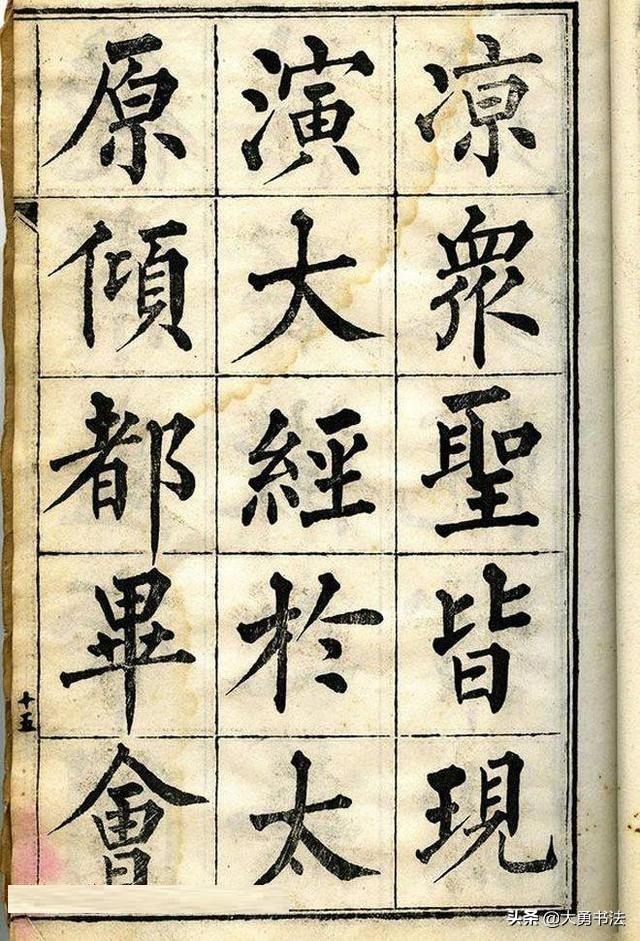 凉衆聖皆現
演大經於太
原傾都畢會
十五
头条 @大勇书法